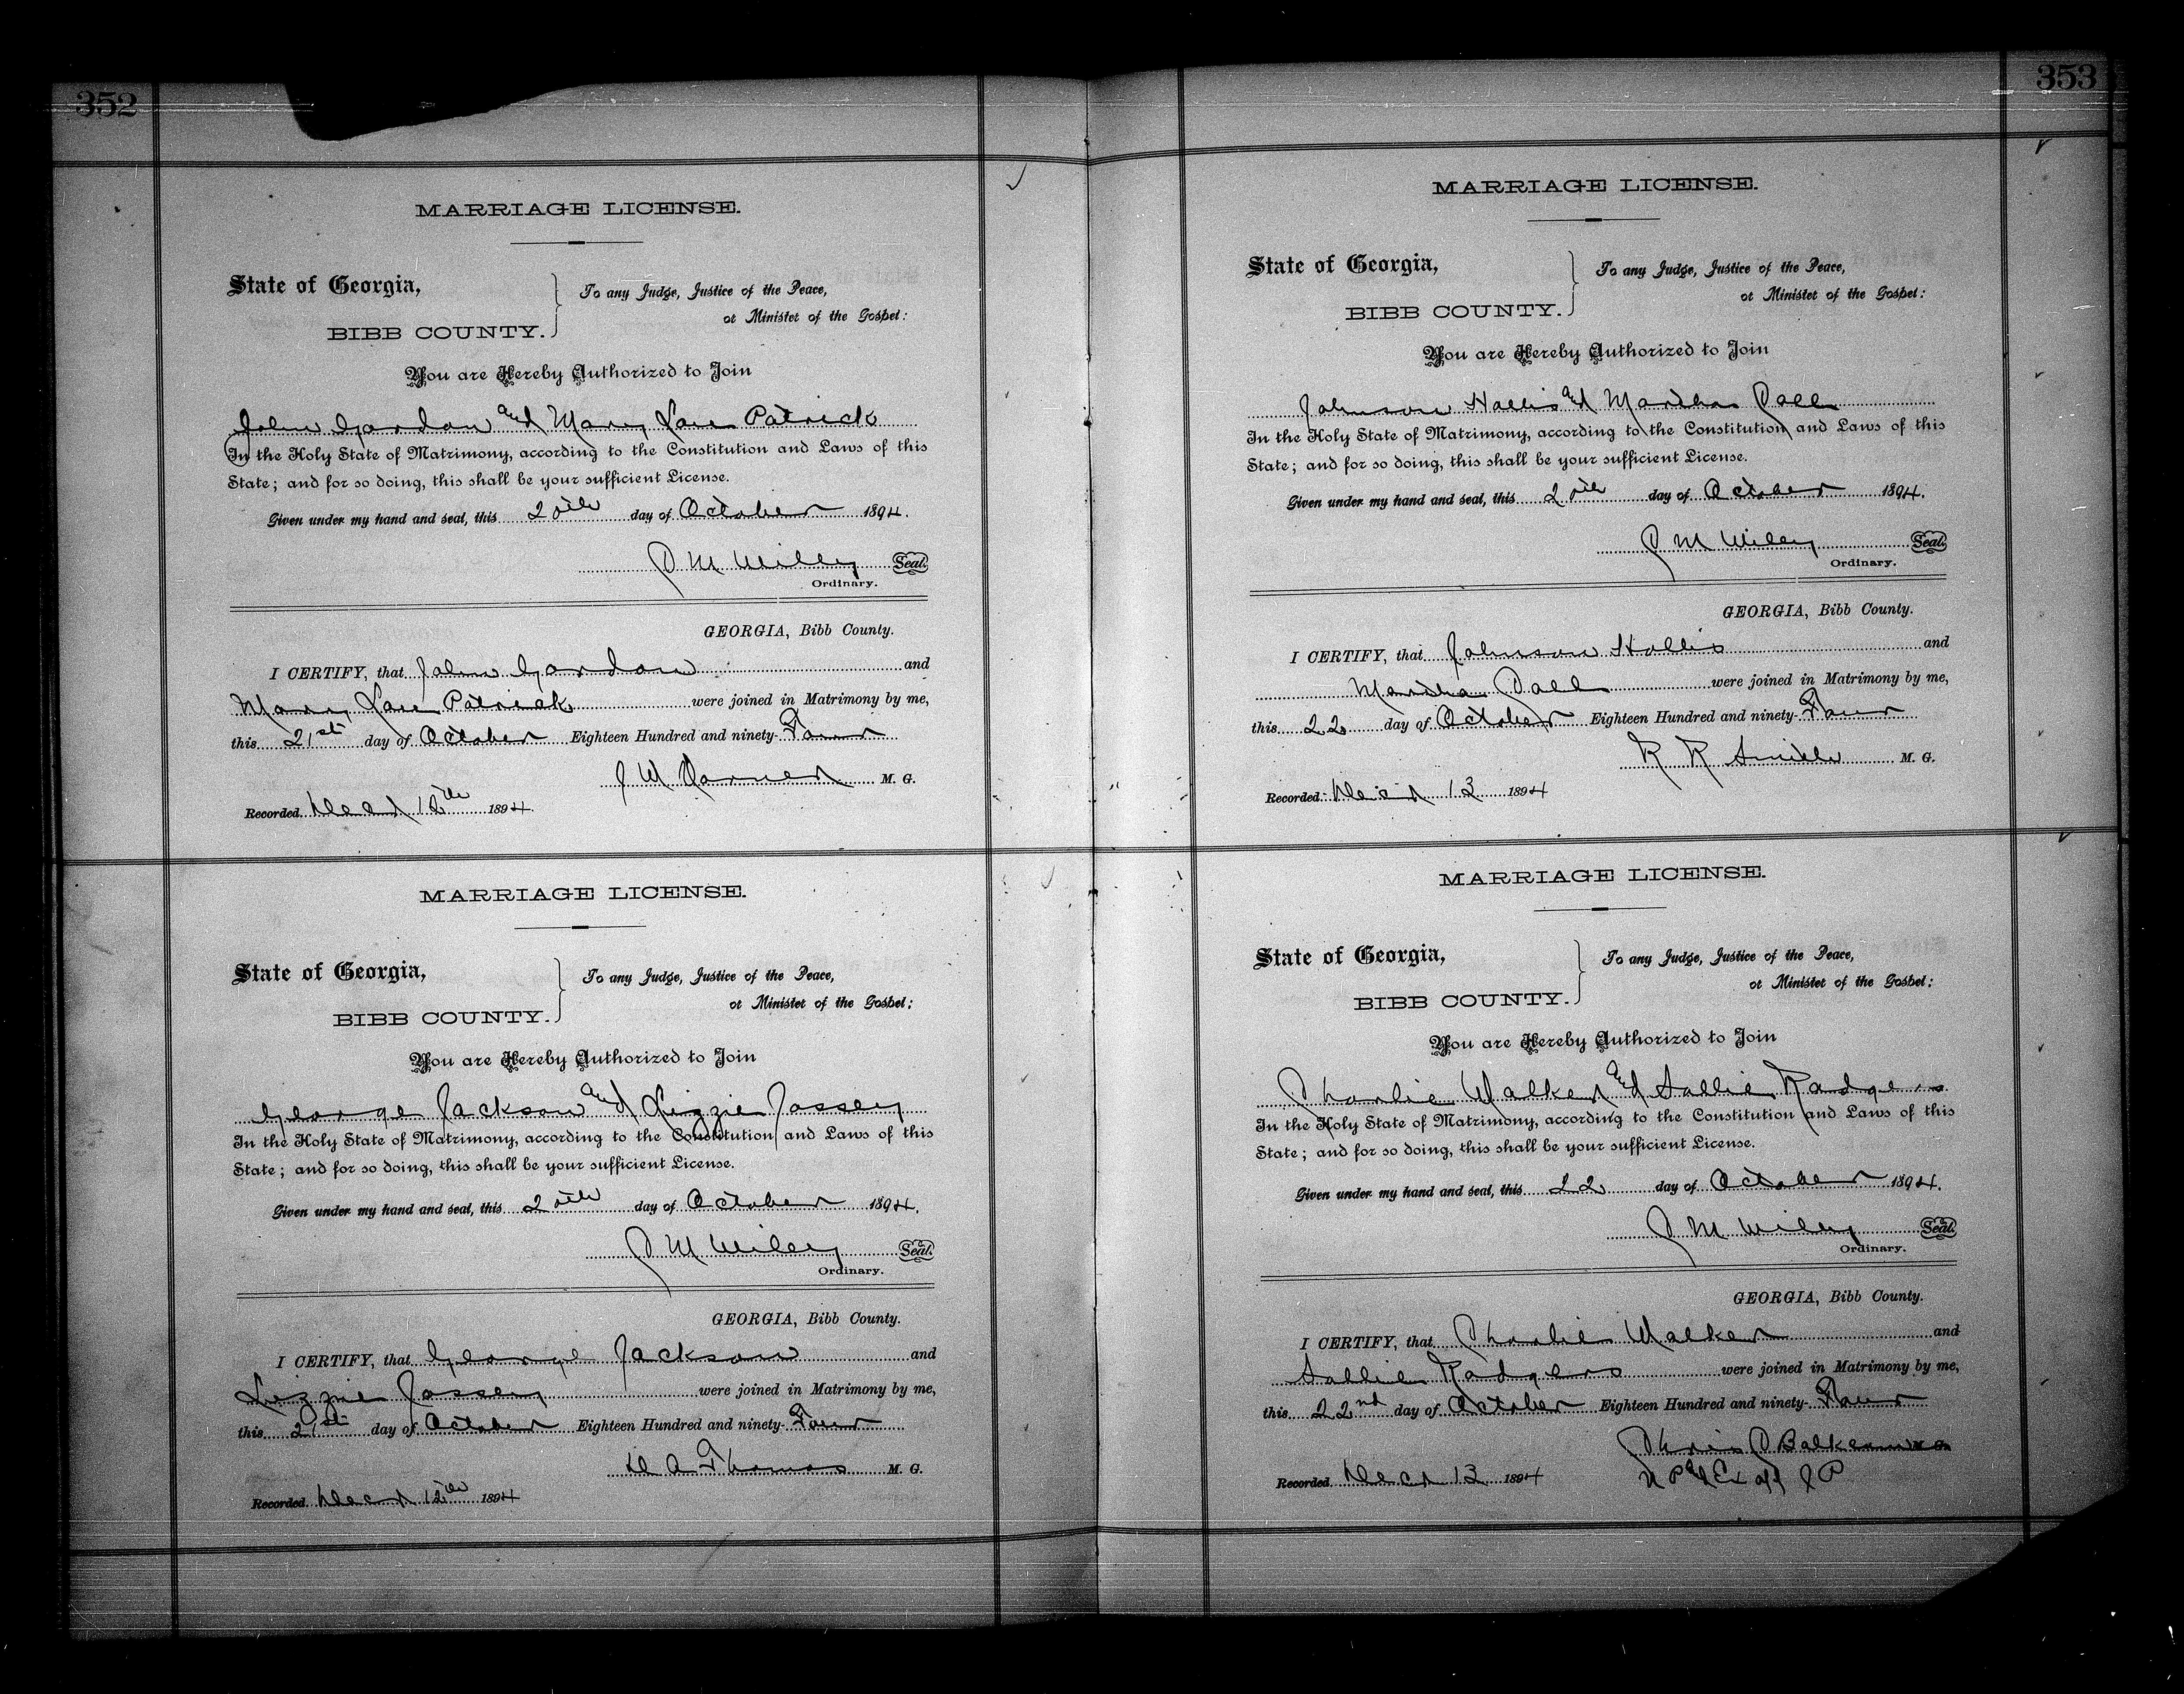 352
MARRIAGE LICENSE.
State of Georgia,
BIBB COUNTY.
To any Judge, Justice of the Peace,
or Minister of the Gospel:
You are Hereby Authorized to Join
John Gordon and Mary Patrick
In the Holy State of Matrimony, according to the Constitution and Laws of this
State; and for so doing, this shall be your sufficient License.
Given under my hand and seal, this 20th day of October 1894.
C M Wiley Seal.
Ordinary.
GEORGIA, Bibb County.
I CERTIFY, that John Gordon and
Mary Patrick were joined in Matrimony by me,
this 21st day of October Eighteen Hundred and ninety-Four
J W M. G.
Recorded Decr 12th 1894.
MARRIAGE LICENSE.
State of Georgia,
BIBB COUNTY.
To any Judge, Justice of the Peace,
or Minister of the Gospel:
You are Hereby Authorized to Join
George Jackson and Lizzie Jossey
In the Holy State of Matrimony, according to the Constitution and Laws of this
State; and for so doing, this shall be your sufficient License.
Given under my hand and seal, this 20th day of October 1894.
C M Wiley Seal.
Ordinary.
GEORGIA, Bibb County.
I CERTIFY, that George Jackson and
Lizzie Jossey were joined in Matrimony by me,
this 21st day of October Eighteen Hundred and ninety-Four
Thomas M. G.
Recorded Decr 12th 1894
353
MARRIAGE LICENSE.
State of Georgia,
BIBB COUNTY.
To any Judge, Justice of the Peace,
or Minister of the Gospel:
You are Hereby Authorized to Join
Johnson Hollis and Martha
In the Holy State of Matrimony, according to the Constitution and Laws of this
State; and for so doing, this shall be your sufficient License.
Given under my hand and seal, this 20th day of October 1894.
C M Wiley Seal.
Ordinary.
GEORGIA, Bibb County.
I CERTIFY, that Johnson Hollis and
Martha were joined in Matrimony by me,
this 22 day of October Eighteen Hundred and ninety-Four
R R Smith M. G.
Recorded Decr 13 1894
MARRIAGE LICENSE.
State of Georgia,
BIBB COUNTY.
To any Judge, Justice of the Peace,
or Minister of the Gospel:
You are Hereby Authorized to Join
Charlie Walker and Sallie Rodgers
In the Holy State of Matrimony, according to the Constitution and Laws of this
State; and for so doing, this shall be your sufficient License.
Given under my hand and seal, this 22 day of October 1894.
C M Wiley Seal.
Ordinary.
GEORGIA, Bibb County.
I CERTIFY, that Charlie Walker and
Sallie Rodgers were joined in Matrimony by me,
this 22nd day of October Eighteen Hundred and ninety-Four
Chris C Balkcom M. G.
Recorded Decr 13 1894
N P & Ex off J P